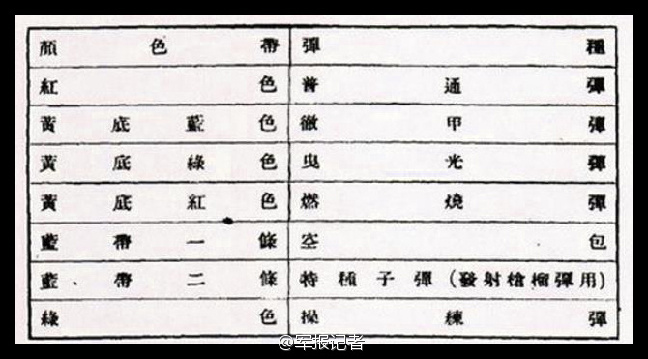 顏色帶 彈種
紅色 普通彈
黃底藍色 徹甲彈
黃底綠色 曳光彈
黃底紅色 燃燒彈
藍帶一條 空包
藍帶二條 特種子彈(發射槍榴彈用)
綠色 操練彈
@军报记者